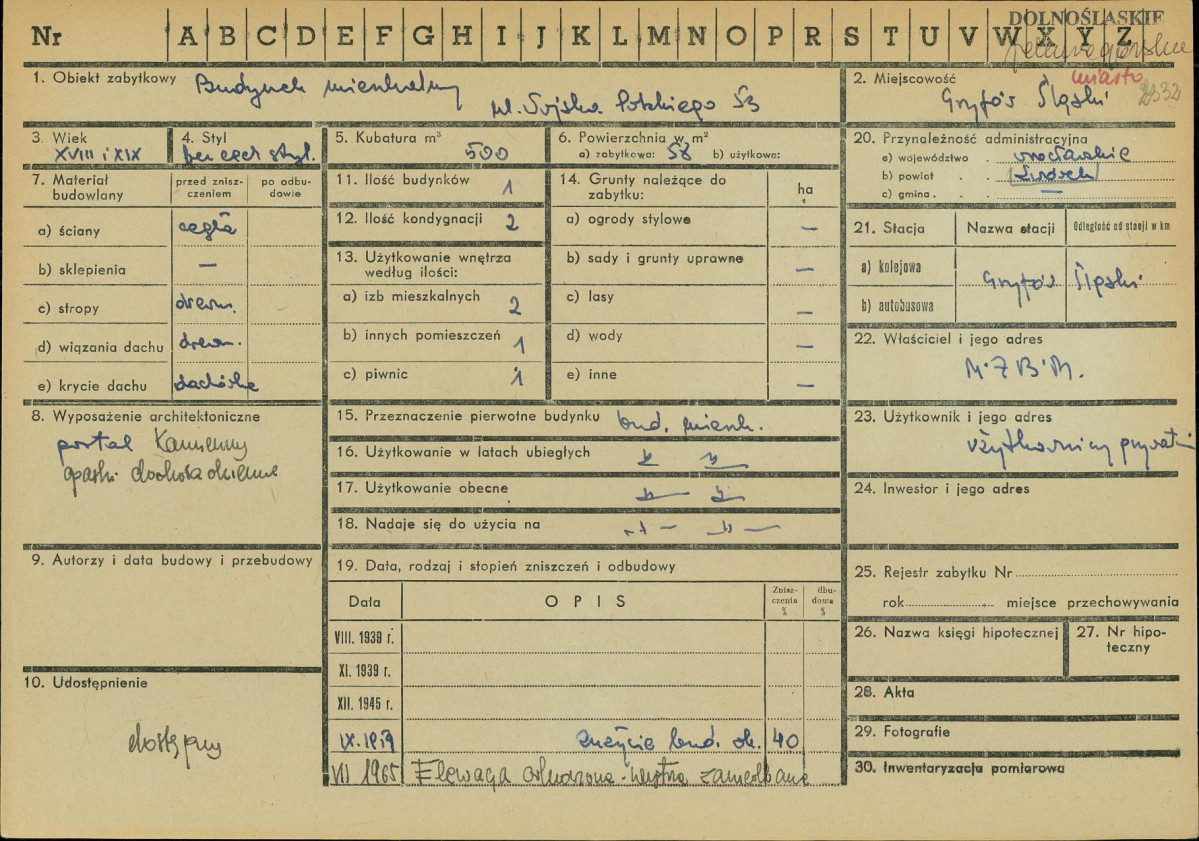 DOLNOŚLĄSKIE
Nr A B C D E F G H I J K L M N O P R S T U V W X Y Z
jeleniogórskie
miasto
1. Obiekt zabytkowy Budynek mieszkalny
ul. Wojska Polskiego 53
2. Miejscowość
Gryfów Śląski
3. Wiek
XVIII i XIX
4. Styl
bez cech styl.
5. Kubatura m³
500
6. Powierzchnia w m²
a) zabytkowa: 58 b) użytkowa:
20. Przynależność administracyjna
a) województwo wrocławskie
b) powiat Lwówek
c) gmina —
7. Materiał budowlany
przed zniszczeniem
po odbudowie
a) ściany cegła
b) sklepienia —
c) stropy drewn.
d) wiązania dachu drewn.
e) krycie dachu dachówka
11. Ilość budynków 1
12. Ilość kondygnacji 2
13. Użytkowanie wnętrza według ilości:
a) izb mieszkalnych 2
b) innych pomieszczeń 1
c) piwnic 1
14. Grunty należące do zabytku:
ha
a) ogrody stylowe —
b) sady i grunty uprawne —
c) lasy —
d) wody —
e) inne —
21. Stacja Nazwa stacji Odległość od stacji w km
a) kolejowa
Gryfów Śląski
b) autobusowa
22. Właściciel i jego adres
M.Z.B.M.
8. Wyposażenie architektoniczne
portal Kamienny
opaski dookoła okienne
15. Przeznaczenie pierwotne budynku bud. mieszk.
16. Użytkowanie w latach ubiegłych
17. Użytkowanie obecne
18. Nadaje się do użycia na
23. Użytkownik i jego adres
użytkownicy prywatni
24. Inwestor i jego adres
9. Autorzy i data budowy i przebudowy
19. Data, rodzaj i stopień zniszczeń i odbudowy
Data OPIS Zniszczenia % dbudowa %
VIII. 1939 r.
XI. 1939 r.
XII. 1945 r.
IX.1959 zużycie bud. ok. 40
VII 1965 Elewacja odnowiona - wnętrza zaniedbane
25. Rejestr zabytku Nr
rok miejsce przechowywania
26. Nazwa księgi hipotecznej
27. Nr hipoteczny
10. Udostępnienie
dostępny
28. Akta
29. Fotografie
30. Inwentaryzacja pomiarowa